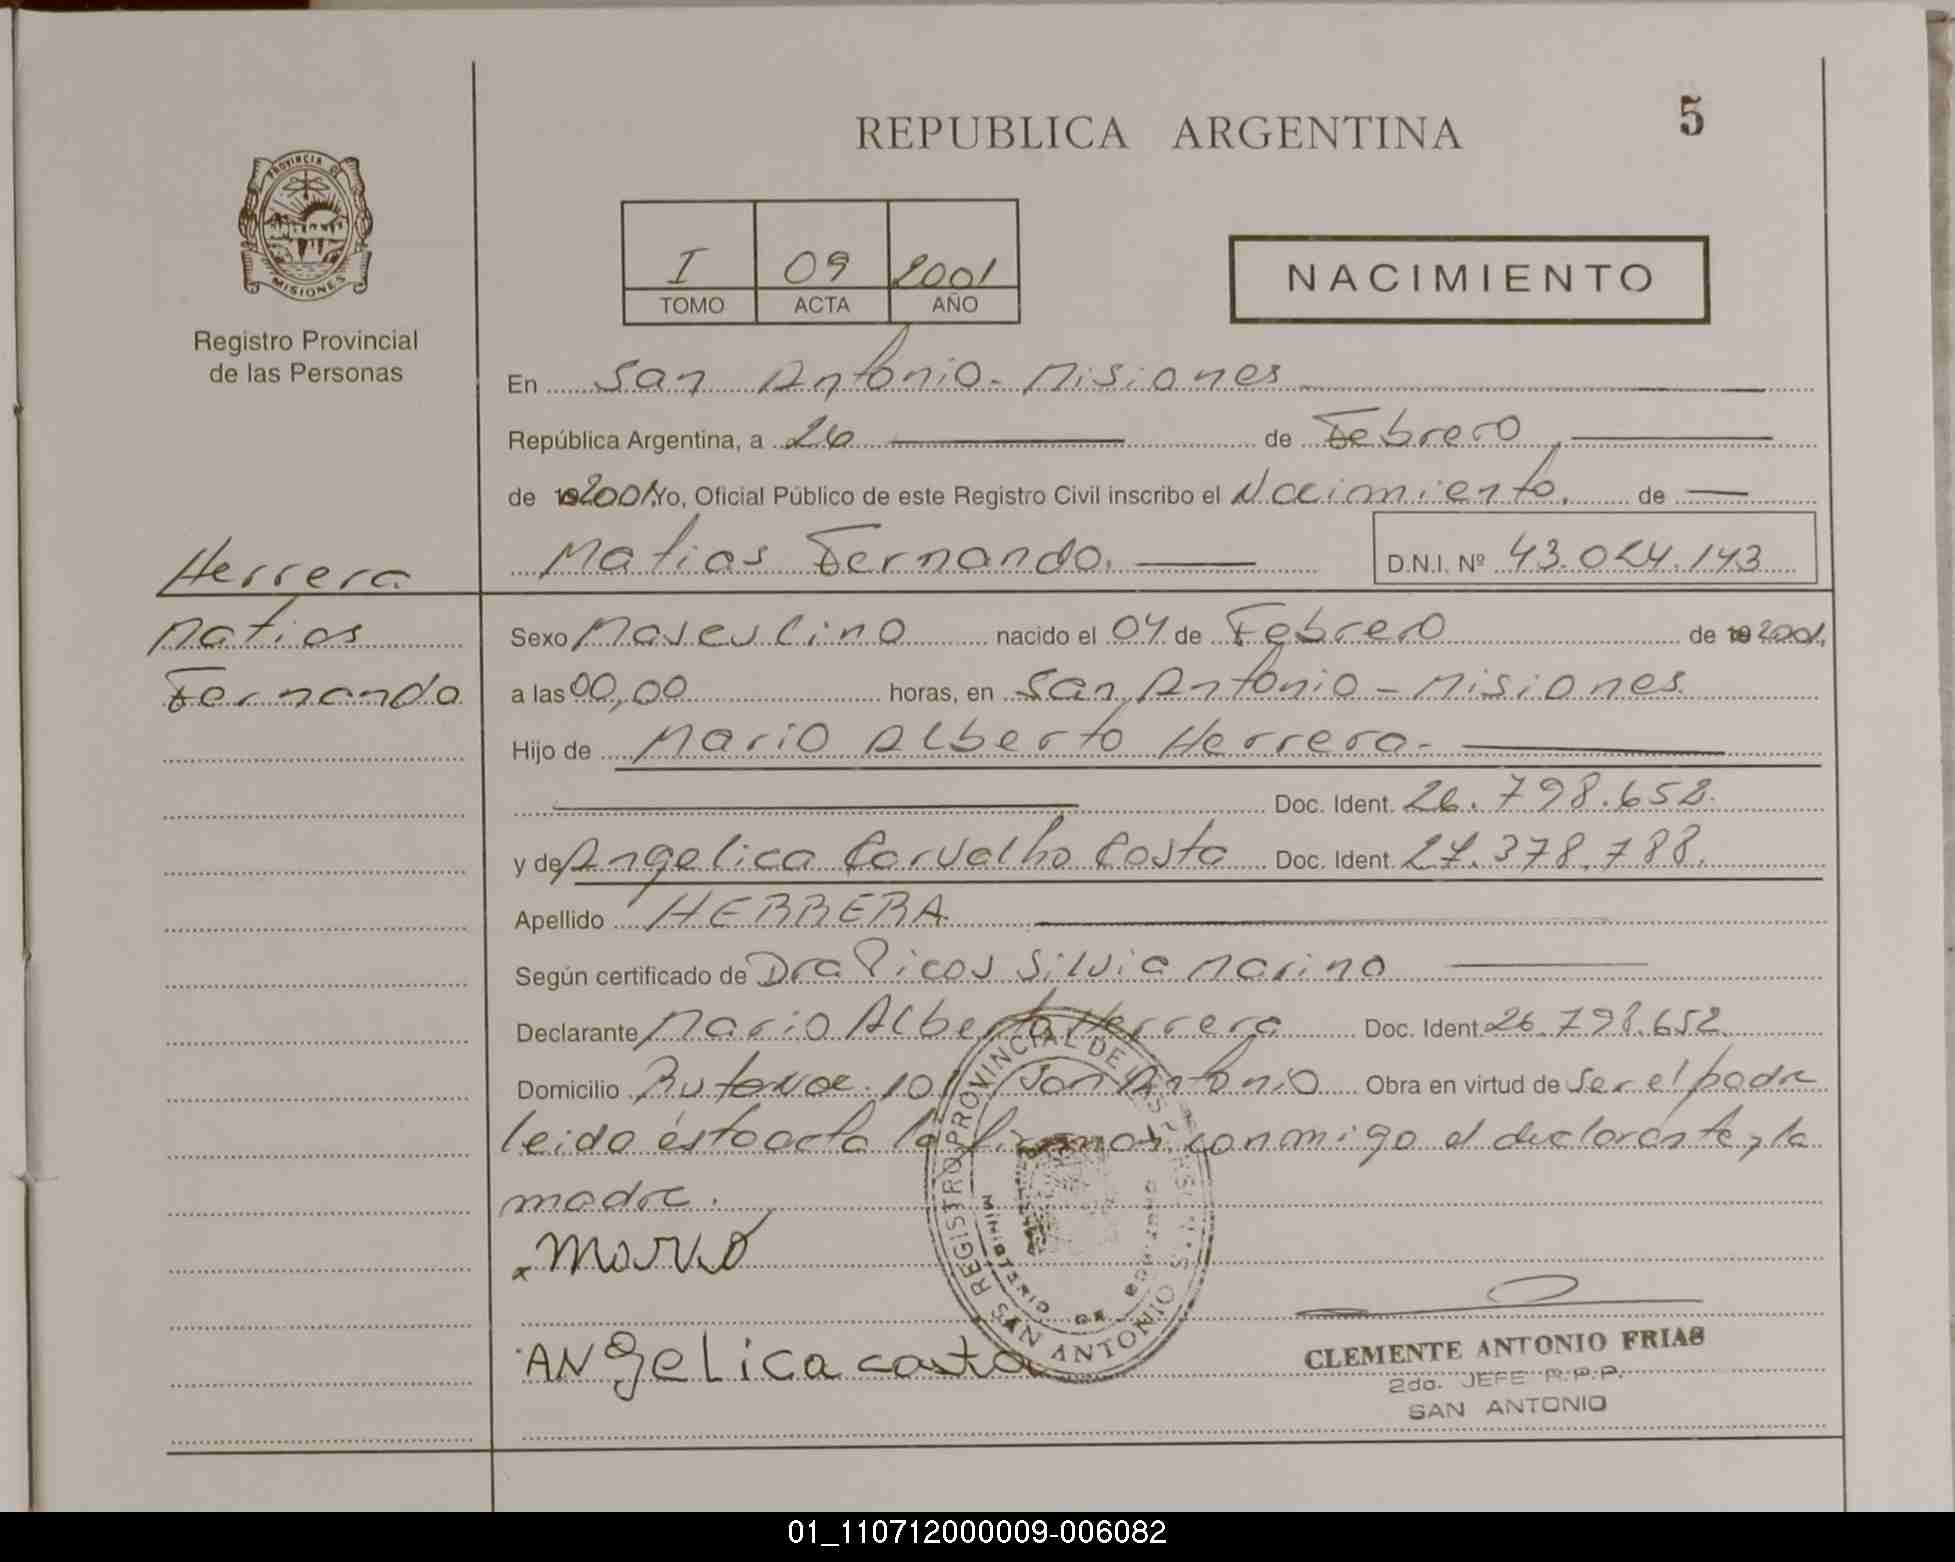 REPUBLICA ARGENTINA
5
PROVINCIA DE
MISIONES
Registro Provincial
de las Personas
I 09 2001
TOMO ACTA AÑO
NACIMIENTO
En San Antonio - Misiones
República Argentina, a 26 de Febrero
de 192001, Yo, Oficial Público de este Registro Civil inscribo el Nacimiento. de
Matias Fernando. D.N.I. Nº 43.024.143
Herrera
Matias
Fernando
Sexo Masculino nacido el 04 de Febrero de 19 2001,
a las 00,00 horas, en San Antonio - Misiones
Hijo de Mario Alberto Herrera.
Doc. Ident. 26.798.652.
y de Angelica Carvalho Costa Doc. Ident. 27.378.788.
Apellido HERRERA
Según certificado de Dra Picos Silvia Marina
Declarante Mario Alberto Herrera Doc. Ident. 26.798.652.
Domicilio Ruta Nac. 101 San Antonio Obra en virtud de ser el padre
leida ésta acta la firman conmigo el declarante y la
madre.
x Mario
ANgelica costa
REGISTRO PROVINCIAL DE LAS PERSONAS
SAN ANTONIO
MINISTERIO DE GOBIERNO
CLEMENTE ANTONIO FRIAS
2do. JEFE R.P.P.
SAN ANTONIO
01_110712000009-006082